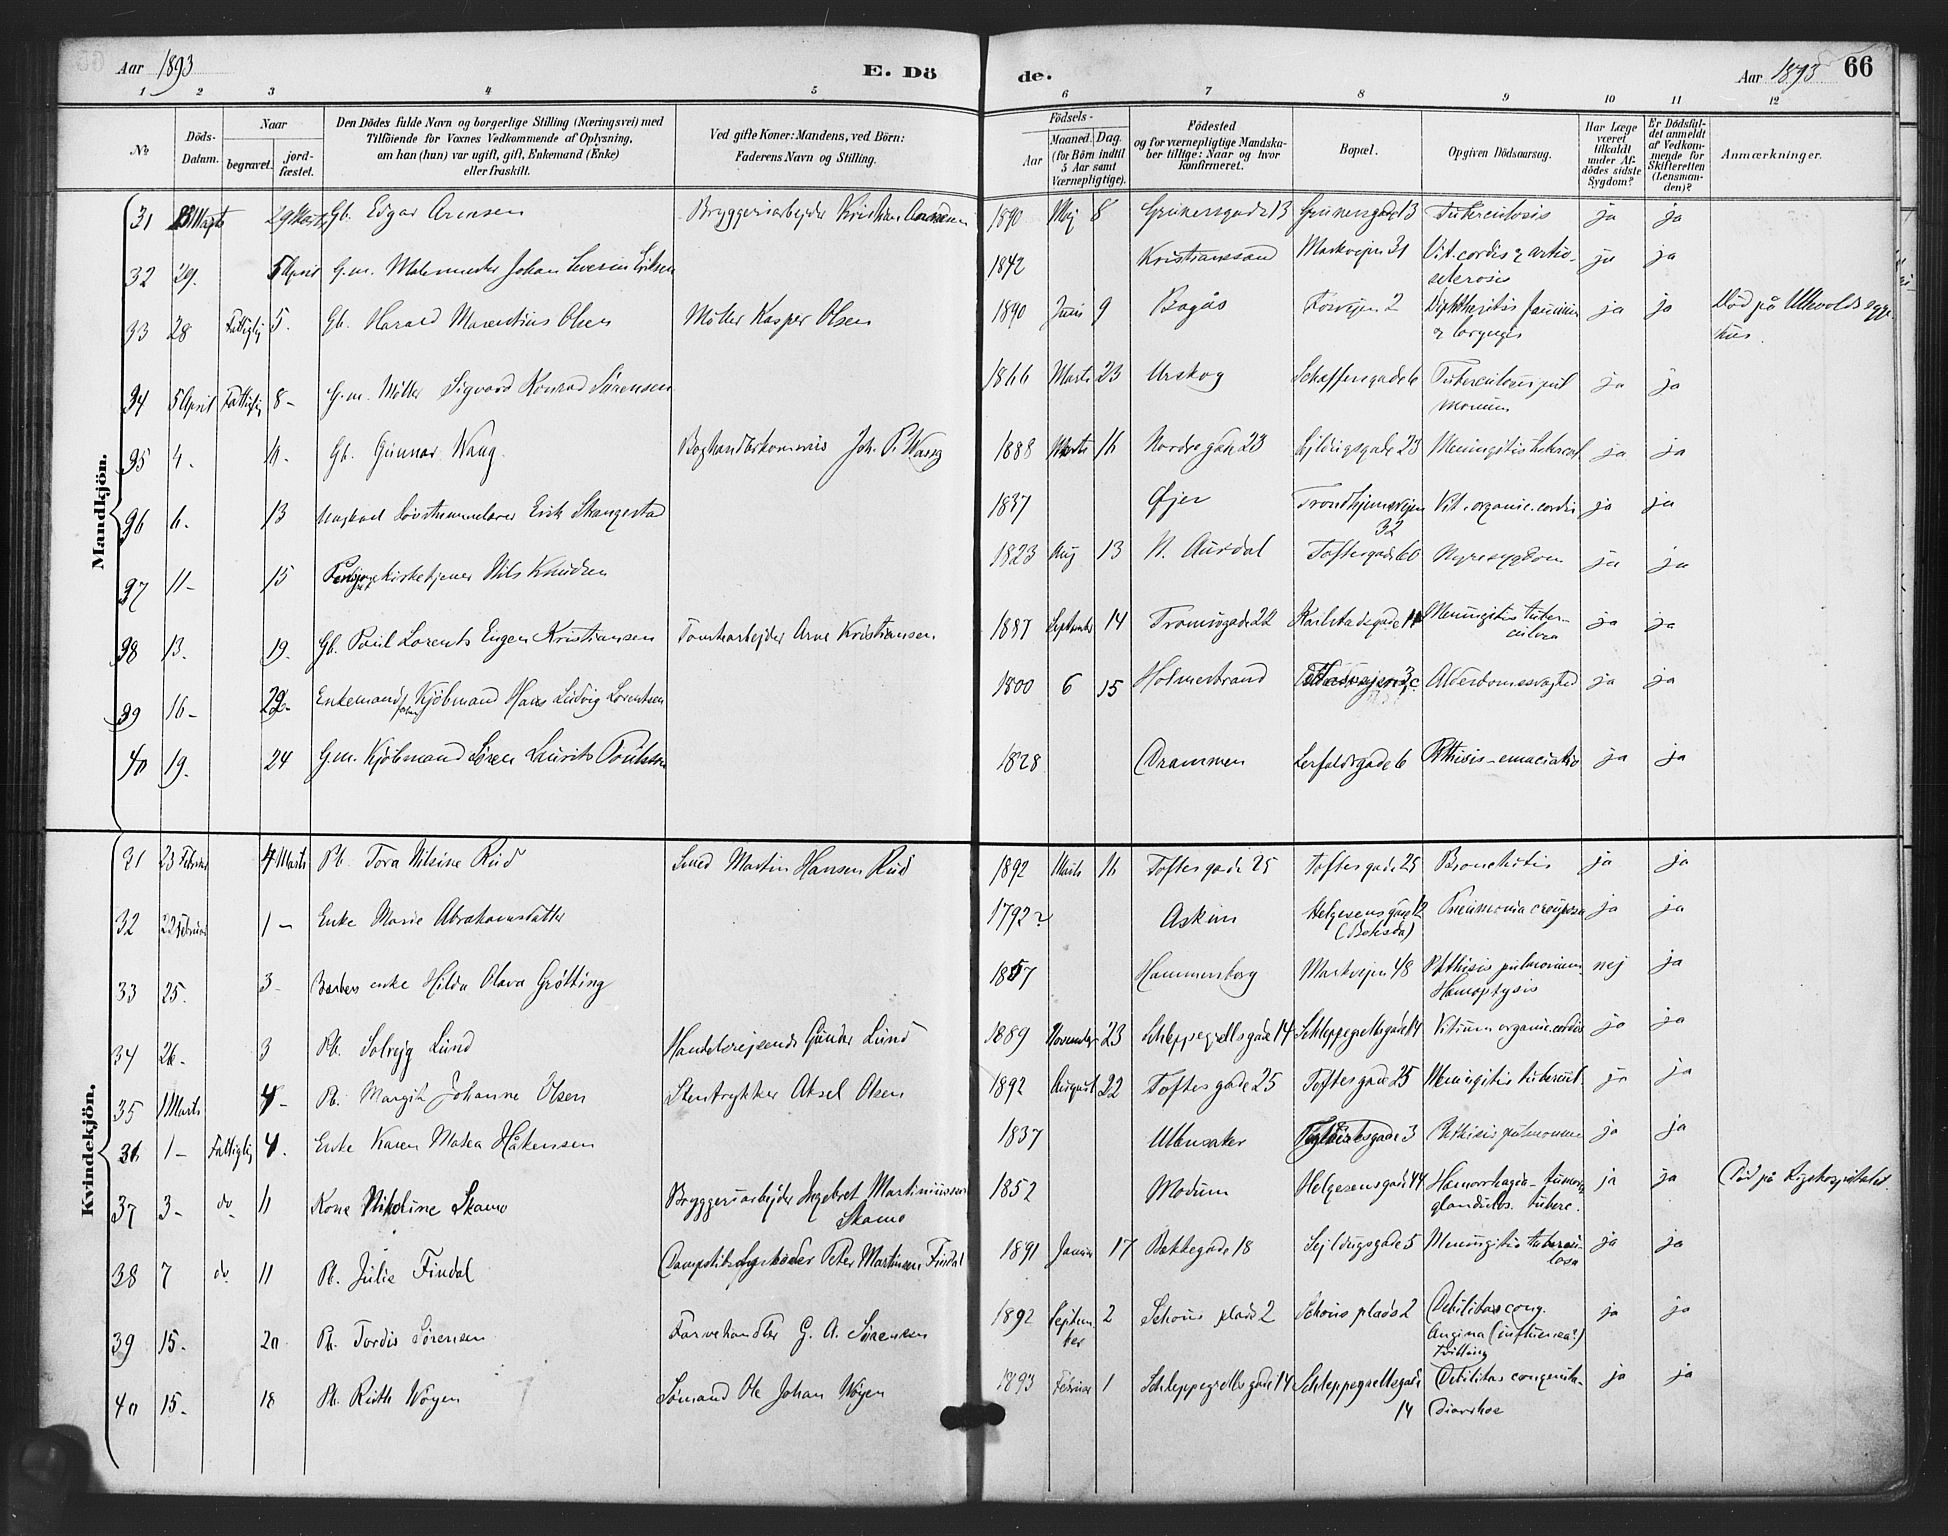 Aar 1893 E. Dö de. Aar 1893 66
1 2 3 4 5 6 7 8 9 10 11 12
No Döds-Datum. Naar begravet. jord-fæstet. Den Dödes fulde Navn og borgerlige Stilling (Næringsvei) med Tilföiende for Voxnes Vedkommende af Oplysning, om han (hun) var ugift, gift, Enkemand (Enke) eller fraskilt. Ved gifte Koner: Mandens, ved Börn: Faderens Navn og Stilling. Födsels- Aar Maaned. Dag. (for Börn indtil 5 Aar samt Værnepligtige). Födested og for værnepligtige Mandskaber tillige: Naar og hvor konfirmeret. Bopæl. Opgiven Dödsaarsag. Har Læge været tilkaldt under Afdödes sidste Sygdom? Er Dödsfaldet anmeldt af Vedkommende for Skifteretten (Lensmanden)? Anmærkninger.
Mandkjön.
31 Marts 29 Marts Gb. Edgar Arensen Bryggeriarbejder Kristian 1890 Mej 8 Grünersgade 13 Grünersgade 13 Tuberculosis ja ja
32 29. 5 April G.m. Malermester Johan Severin Eriksen 1842 Kristianssand Markvejen 31 Vit. cordis & arterio-sclerosis ja ja
33 28 Fattiglig 5. Gb. Harald Marentius Olsen Møller Kasper Olsen 1890 Juni 9 2 Diphtheritis faucium & laryngis ja ja Død på Ullevolds sygehus.
34 5 April Fattiglig 8 - G.m. Møller Sigvard Konrad Sørensen 1866 Marts 23 Urskog Schaffersgade 6 Tuberculosis pulmonum ja ja
35 4. 11. Gb. Gunnar Waag. Boghandlerkommis Joh. P. Waag 1888 Marts 16 Nordregade 23 Sejldugsgade 23 Meningitis tubercul ja ja
36 6. 13 Ungkarl Erik Skangestad 1837 Øjer Trondhjemsvejen 32 Vit. organic. cordis ja ja
37 11 - 15 Kirketjener Nils Knudsen 1823 Aug 13 N. Aurdal Toftesgade 60 Nyresygdom ja ja
38 13. 19. Gb. Paul Lorents Eugen Kristiansen Tomtearbejder Arne Kristiansen 1887 September 14 Tromsøgade 22 Karlstadsgade Meningitis tuberculosa ja ja
39 16 - 22 Enkemand Kjøbmand Hans Ludvig Lorentsen 1800 6 15 Holmestrand Alderdomssvaghed ja ja
40 19. 24 G.m. Kjøbmand Søren Laurits Poulsen 1828 Drammen Lerfaldsgade 6 Phthisis - emaciatio ja ja
Kvindekjön.
31 23 Februar 4 Marts Pb. Tora Nilsine Rud Smed Martin Hansen Rud 1892 Marts 16 Toftesgade 25 Toftesgade 25 Bronchitis ja ja
32 22 Februar 1 - Enke Marie Abrahamsdatter 1792? Askim Helgesensgade 12 Pneumonia crouposa ja ja
33 25. 3 - enke Hilda Olava Grøtting 1857 Hammersborg Markvejen 48 Phthisis pulmonum Hæmoptysis nej ja
34 26. 3 Pb. Solvejg Lund Handelsrejsende Gunder Lund 1889 November 23 Schleppegrellsgade 14 Schleppegrellsgade 14 Vitium organic. cordis ja ja
35 1 Marts 4 - Pb. Margit Johanne Olsen Stentrykker Aksel Olsen 1892 August 22 Toftesgade 25 Toftesgade 25 Meningitis tubercul. ja ja
36 1 - Fattiglig 4. Enke Karen Matea Håkensen 1837 Ullensaker 3 Phthisis pulmonum ja ja
37 3 - do 11 Kone Nikoline Skamo Bryggeriarbejder Ingebret Martiniussen Skamo 1852 Modum Helgesensgade 44 Hæmorrhagia - tumor glandulos. tuberc. ja ja Død på Rigshospitalet.
38 7 do 11 Pb. Julie Findal Peter Martinsen Findal 1891 Januar 17 Bekkegade 18 Sejldugsgade 5 Meningitis tuberculosa ja ja
39 15. 20 Pb. Tordis Sørensen Farvehandler G. A. Sørensen 1892 September 2 Schous plads 2 Schous plads 2 Debilitas cong. Angina (influensa?) Tvilling ja ja
40 15. 18 Pb. Ruth Wøyen Sømand Ole Johan Wøyen 1893 Februar 1 Schleppegrellsgade 14 Schleppegrellsgade 14 Debilitas congenita Diarrhoe ja ja